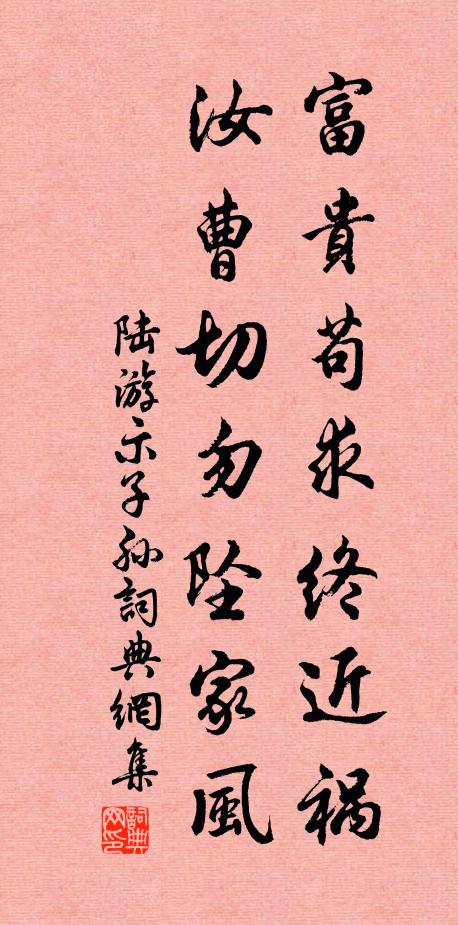 富貴苟求終近禍
汝曹切勿坠家風
陆游示子孙詞典網集
詞典網印